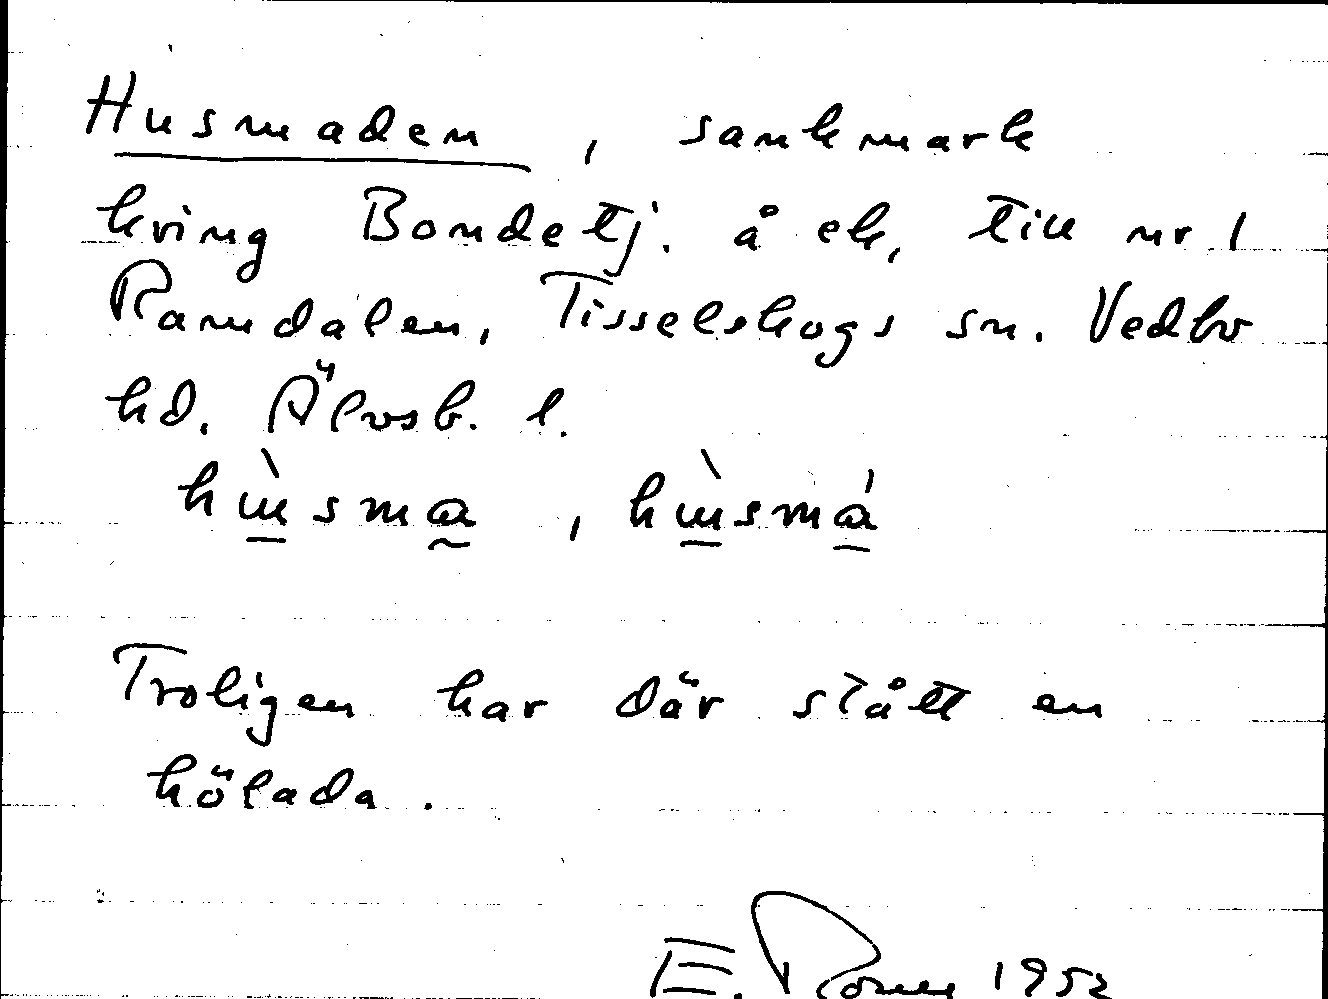 Husmaden, sankmark
kring Bondetj. å ek, till nr 1
Ramdalen, Tisselskogs sn. Vedbo
hd. Älvsb. l.
hùsma, hùsmá
Troligen har där stått en
hölada.
E. 1952